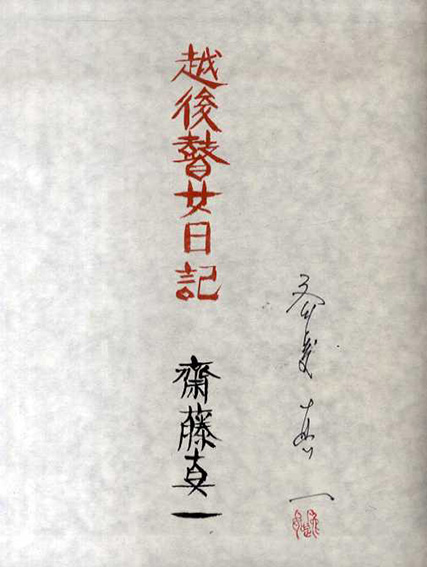 越後瞽女日記
齋藤真一
斎藤真一